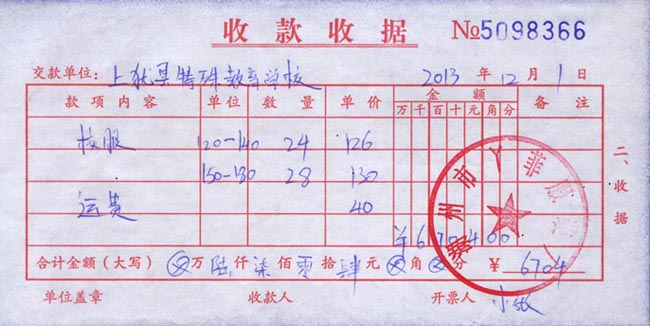 收款收据 №5098366
交款单位：上犹县特殊教育学校 2013年12月1日
款项内容 单位 数量 单价 金额 备注
万千百十元角分
校服 120-140 24 126
150-180 28 130
运费 40
¥670400
合计金额（大写）⊗万陆仟柒佰零拾肆元⊗角⊗分 ¥6704
单位盖章 收款人 开票人 小
二、收据
州市